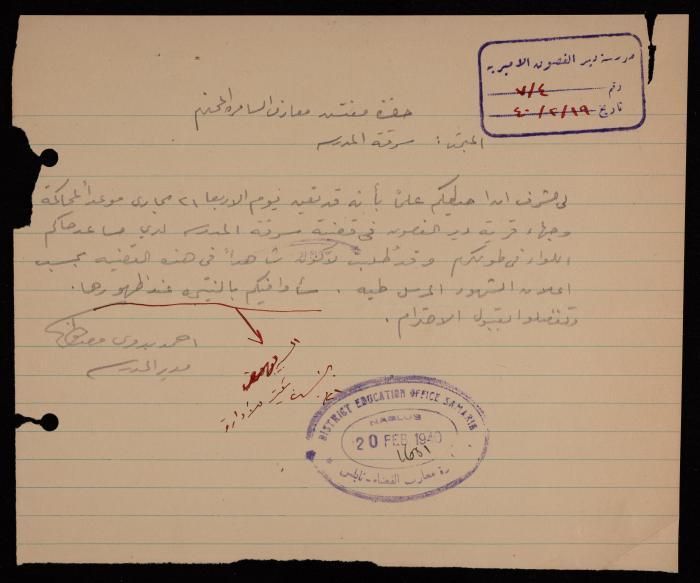 مدرسة دير الغصون الاميرية
رقم ٧/٤
تاريخ ٤٠/٢/١٩
حضرة مفتش معارف السامرة المحترم
المبحث: سرقة المدرسه
لي الشرف ان احيطكم علماً بأنه قد تعين يوم الاربعا ٢١ الجاري موعداً لمحاكمة
وجهاء قرية دير الغصون في قضية سرقة المدرسه لدى مساعد حاكم
اللواء في طولكرم وقد طُلبت لأكون شاهداً في هذه القضية بحسب
اعلان الشهود المرسل طيه. سأوافيكم بالنتيجه عند ظهورها.
وتفضلوا بقبول الاحترام.
احمد بدوي
مدير المدرسه
DISTRICT EDUCATION OFFICE SAMARIA
NABLUS
20 FEB 1940
1681
معارف القضاء - نابلس